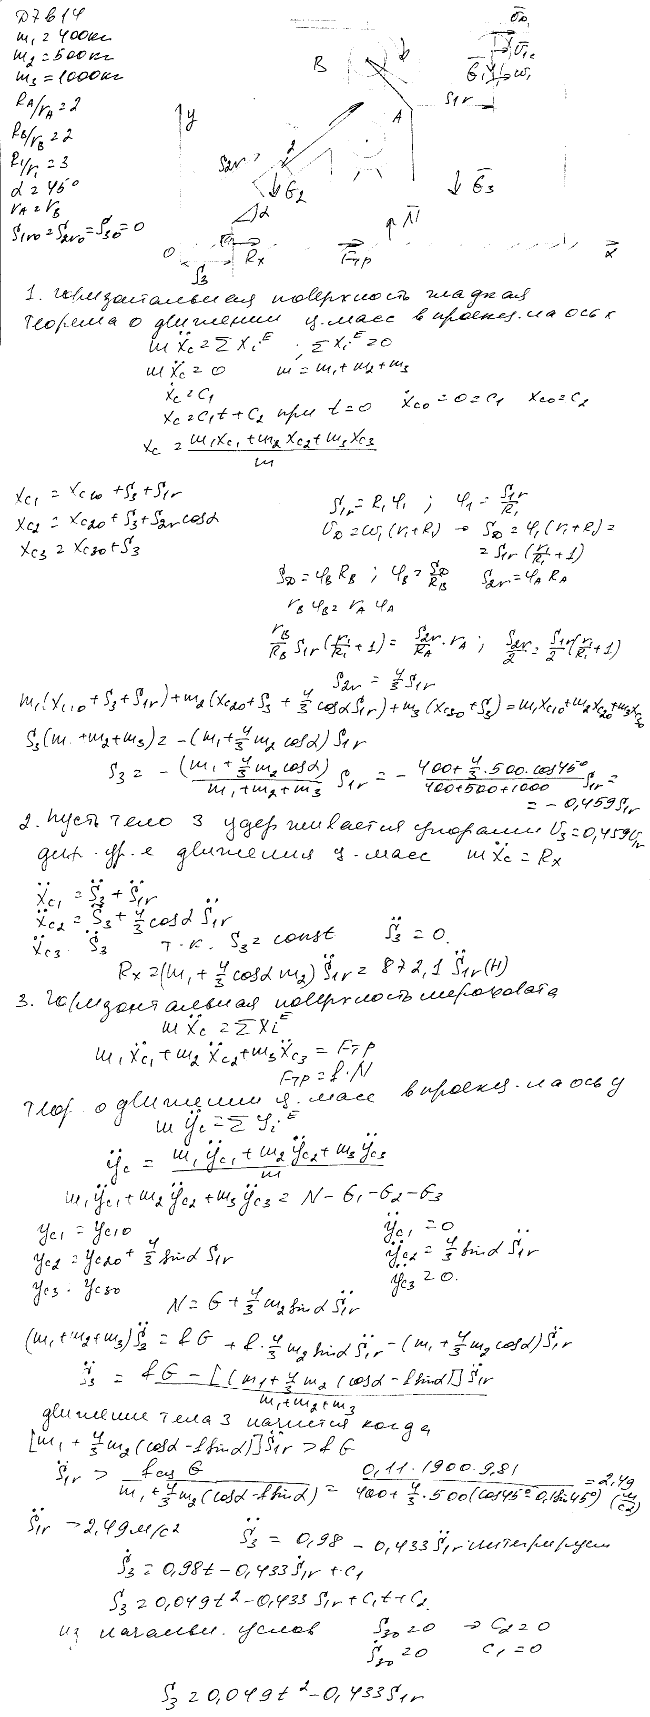 D7 В14
m₁ = 400кг
m₂ = 500кг
m₃ = 1000кг
R_A/r_A = 2
R_B/r_B = 2
R₁/r₁ = 3
α = 45°
r_A = r_B
S₁r₀ = S₂r₀ = Ṡ₃₀ = 0
B A y O x
S₁r S₂r 2 α S₃ Rx Fтр N̄ Ḡ₁ Ḡ₂ Ḡ₃ ω₁
1. горизонтальная поверхность гладкая
Теорема о движении ц. масс в проекц. на ось x
mẍc = ΣXᵢᴱ ; ΣXᵢᴱ = 0
mẍc = 0 m = m₁+m₂+m₃
ẋc = C₁
xc = C₁t + C₂ при t=0 ẋc₀ = 0 = C₁ xc₀ = C₂
xc = (m₁xc₁ + m₂xc₂ + m₃xc₃)/m
xc₁ = xc₁₀ + S₃ + S₁r
xc₂ = xc₂₀ + S₃ + S₂r cosα
xc₃ = xc₃₀ + S₃
S₁r = R₁φ₁ ; φ₁ = S₁r/R₁
V_D = ω₁(r₁+R₁) → S_D = φ₁(r₁+R₁) =
= S₁r(r₁/R₁ + 1)
S_D = φ_B R_B ; φ_B = S_D/R_B S₂r = φ_A R_A
r_B φ_B = r_A φ_A
r_B/R_B S₁r(r₁/R₁ + 1) = S₂r/R_A · r_A ; S₂r/2 = S₁r/2 (r₁/R₁ + 1)
S₂r = 4/3 S₁r
m₁(xc₁₀ + S₃ + S₁r) + m₂(xc₂₀ + S₃ + 4/3 cosα S₁r) + m₃(xc₃₀ + S₃) = m₁xc₁₀ + m₂xc₂₀ + m₃xc₃₀
S₃(m₁+m₂+m₃) = -(m₁ + 4/3 m₂ cosα) S₁r
S₃ = - (m₁ + 4/3 m₂ cosα)/(m₁+m₂+m₃) S₁r = - (400 + 4/3 · 500 · cos45°)/(400+500+1000) S₁r =
= -0,459 S₁r
2. Пусть тело 3 удерживается упорами V₃ = 0,459V₁r
диф. ур-е движения ц. масс mẍc = Rx
ẍc₁ = S̈₃ + S̈₁r
ẍc₂ = S̈₃ + 4/3 cosα S̈₁r
ẍc₃ · S̈₃ т.к. S₃ = const S̈₃ = 0.
Rx = (m₁ + 4/3 cosα m₂) S̈₁r = 872,1 S̈₁r (Н)
3. горизонтальная поверхность шероховата
mẍc = ΣXᵢᴱ
m₁ẍc₁ + m₂ẍc₂ + m₃ẍc₃ = Fтр
Fтр = f·N
Теор. о движении ц. масс в проекц. на ось y
mÿc = ΣYᵢᴱ
ÿc = (m₁ÿc₁ + m₂ÿc₂ + m₃ÿc₃)/m
m₁ÿc₁ + m₂ÿc₂ + m₃ÿc₃ = N - G₁ - G₂ - G₃
yc₁ = yc₁₀ ÿc₁ = 0
yc₂ = yc₂₀ + 4/3 sinα S₁r ÿc₂ = 4/3 sinα S̈₁r
yc₃ · yc₃₀ ÿc₃ = 0.
N = G + 4/3 m₂ sinα S̈₁r
(m₁+m₂+m₃) S̈₃ = fG + f · 4/3 m₂ sinα S̈₁r - (m₁ + 4/3 m₂ cosα) S̈₁r
S̈₃ = (fG - [(m₁ + 4/3 m₂ (cosα - f sinα)] S̈₁r)/(m₁+m₂+m₃)
движение тела 3 начнется когда
[m₁ + 4/3 m₂ (cosα - f sinα)] S̈₁r > fG
S̈₁r > fсц G/(m₁ + 4/3 m₂ (cosα - f sinα)) = (0,11 · 1900 · 9,81)/(400 + 4/3 · 500 (cos45° - 0,1sin45°)) = 2,49 (м/с²)
S̈₁r > 2,49 м/с² S̈₃ = 0,98 - 0,433 S̈₁r интегрируем
Ṡ₃ = 0,98t - 0,433 Ṡ₁r + C₁
S₃ = 0,049t² - 0,433 S₁r + C₁t + C₂
из начальн. услов S₃₀ = 0 → C₂ = 0
Ṡ₃₀ = 0 C₁ = 0
S₃ = 0,049t² - 0,433 S₁r